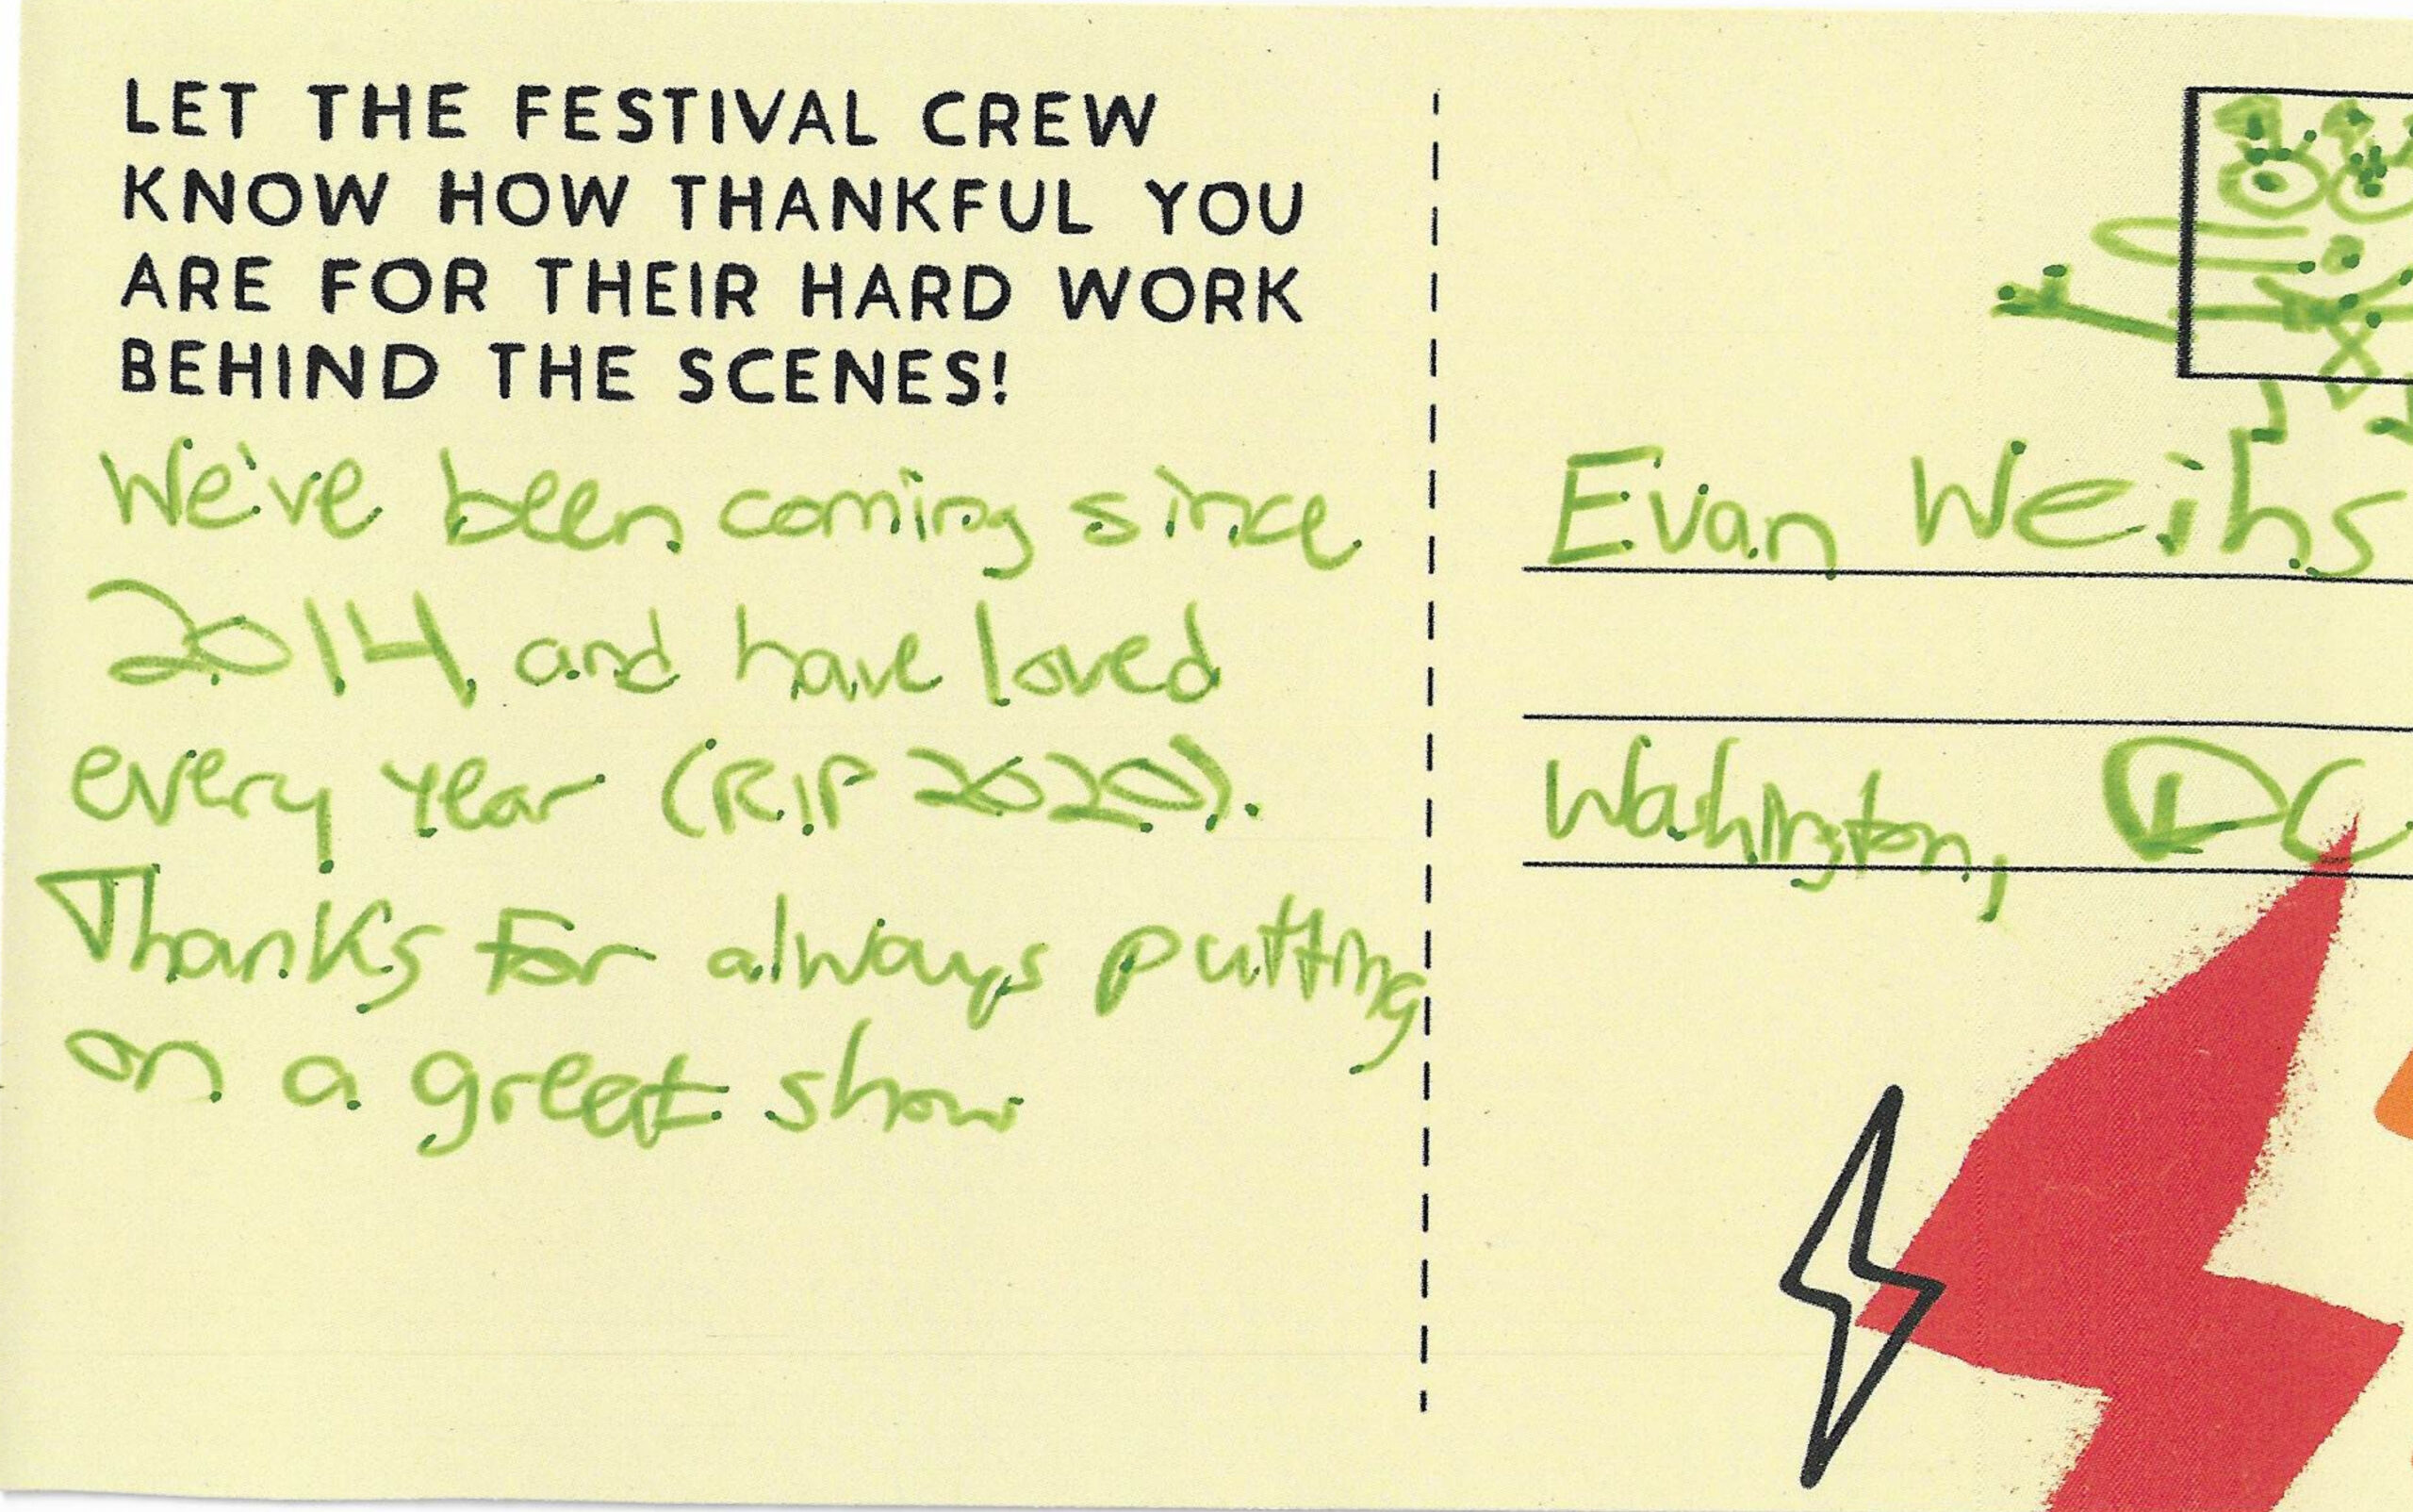 LET THE FESTIVAL CREW
KNOW HOW THANKFUL YOU
ARE FOR THEIR HARD WORK
BEHIND THE SCENES!
We've been coming since
2014 and have loved
every year (RIP 2020).
Thanks for always putting
on a great show
Evan Weihs
Washington, DC